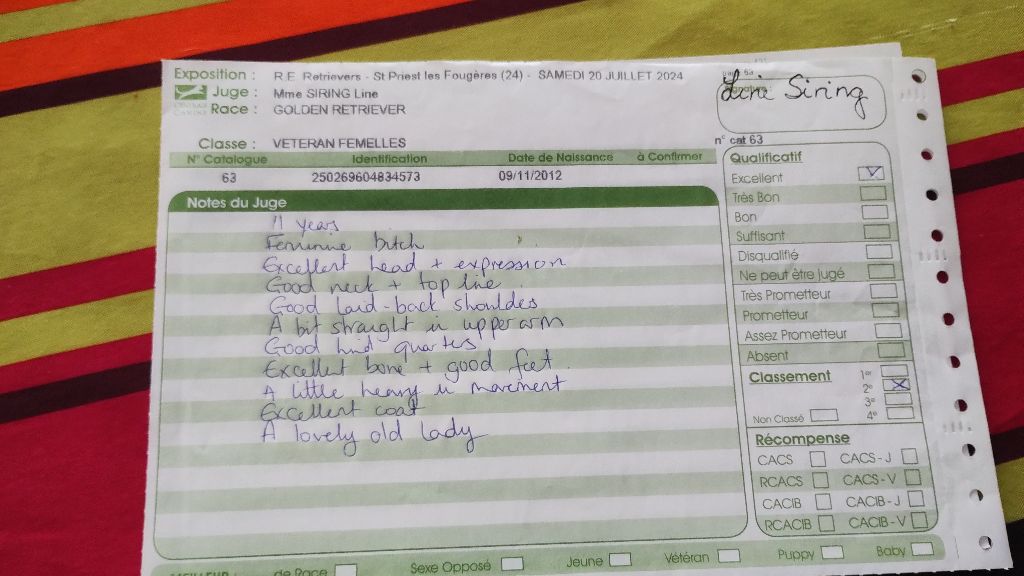 Exposition : R.E. Retrievers - St Priest les Fougères (24) - SAMEDI 20 JUILLET 2024
Juge : Mme SIRING Line
Race : GOLDEN RETRIEVER
Line Siring
Classe : VETERAN FEMELLES
n° cat 63
N° Catalogue Identification Date de Naissance à Confirmer
63 250269604834573 09/11/2012
Notes du Juge
11 years
Feminine bitch
Excellent head + expression
Good neck + top line
Good laid-back shoulders
A bit straight in upper arm
Good hind quarters
Excellent bone + good feet.
A little heavy in movement
Excellent coat
A lovely old lady
Qualificatif
Excellent
Très Bon
Bon
Suffisant
Disqualifié
Ne peut être Jugé
Très Prometteur
Prometteur
Assez Prometteur
Absent
Classement 1er
2e
3e
Non Classé 4e
Récompense
CACS CACS-J
RCACS CACS-V
CACIB CACIB-J
RCACIB CACIB-V
MEILLEUR : de Race Sexe Opposé Jeune Vétéran Puppy Baby